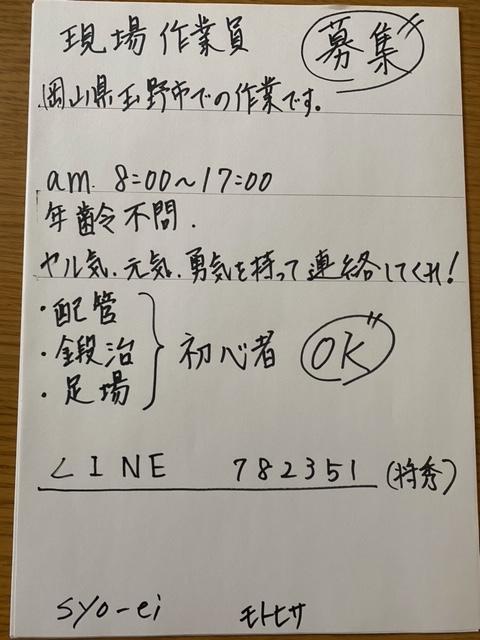 現場作業員 募集
岡山県玉野市での作業です。
am. 8:00~17:00
年齢不問.
ヤル気.元気.勇気を持って連絡してくれ!
・配管
・鍛治 初心者 OK
・足場
LINE 782351 (将秀)
syo-ei モトヒサ